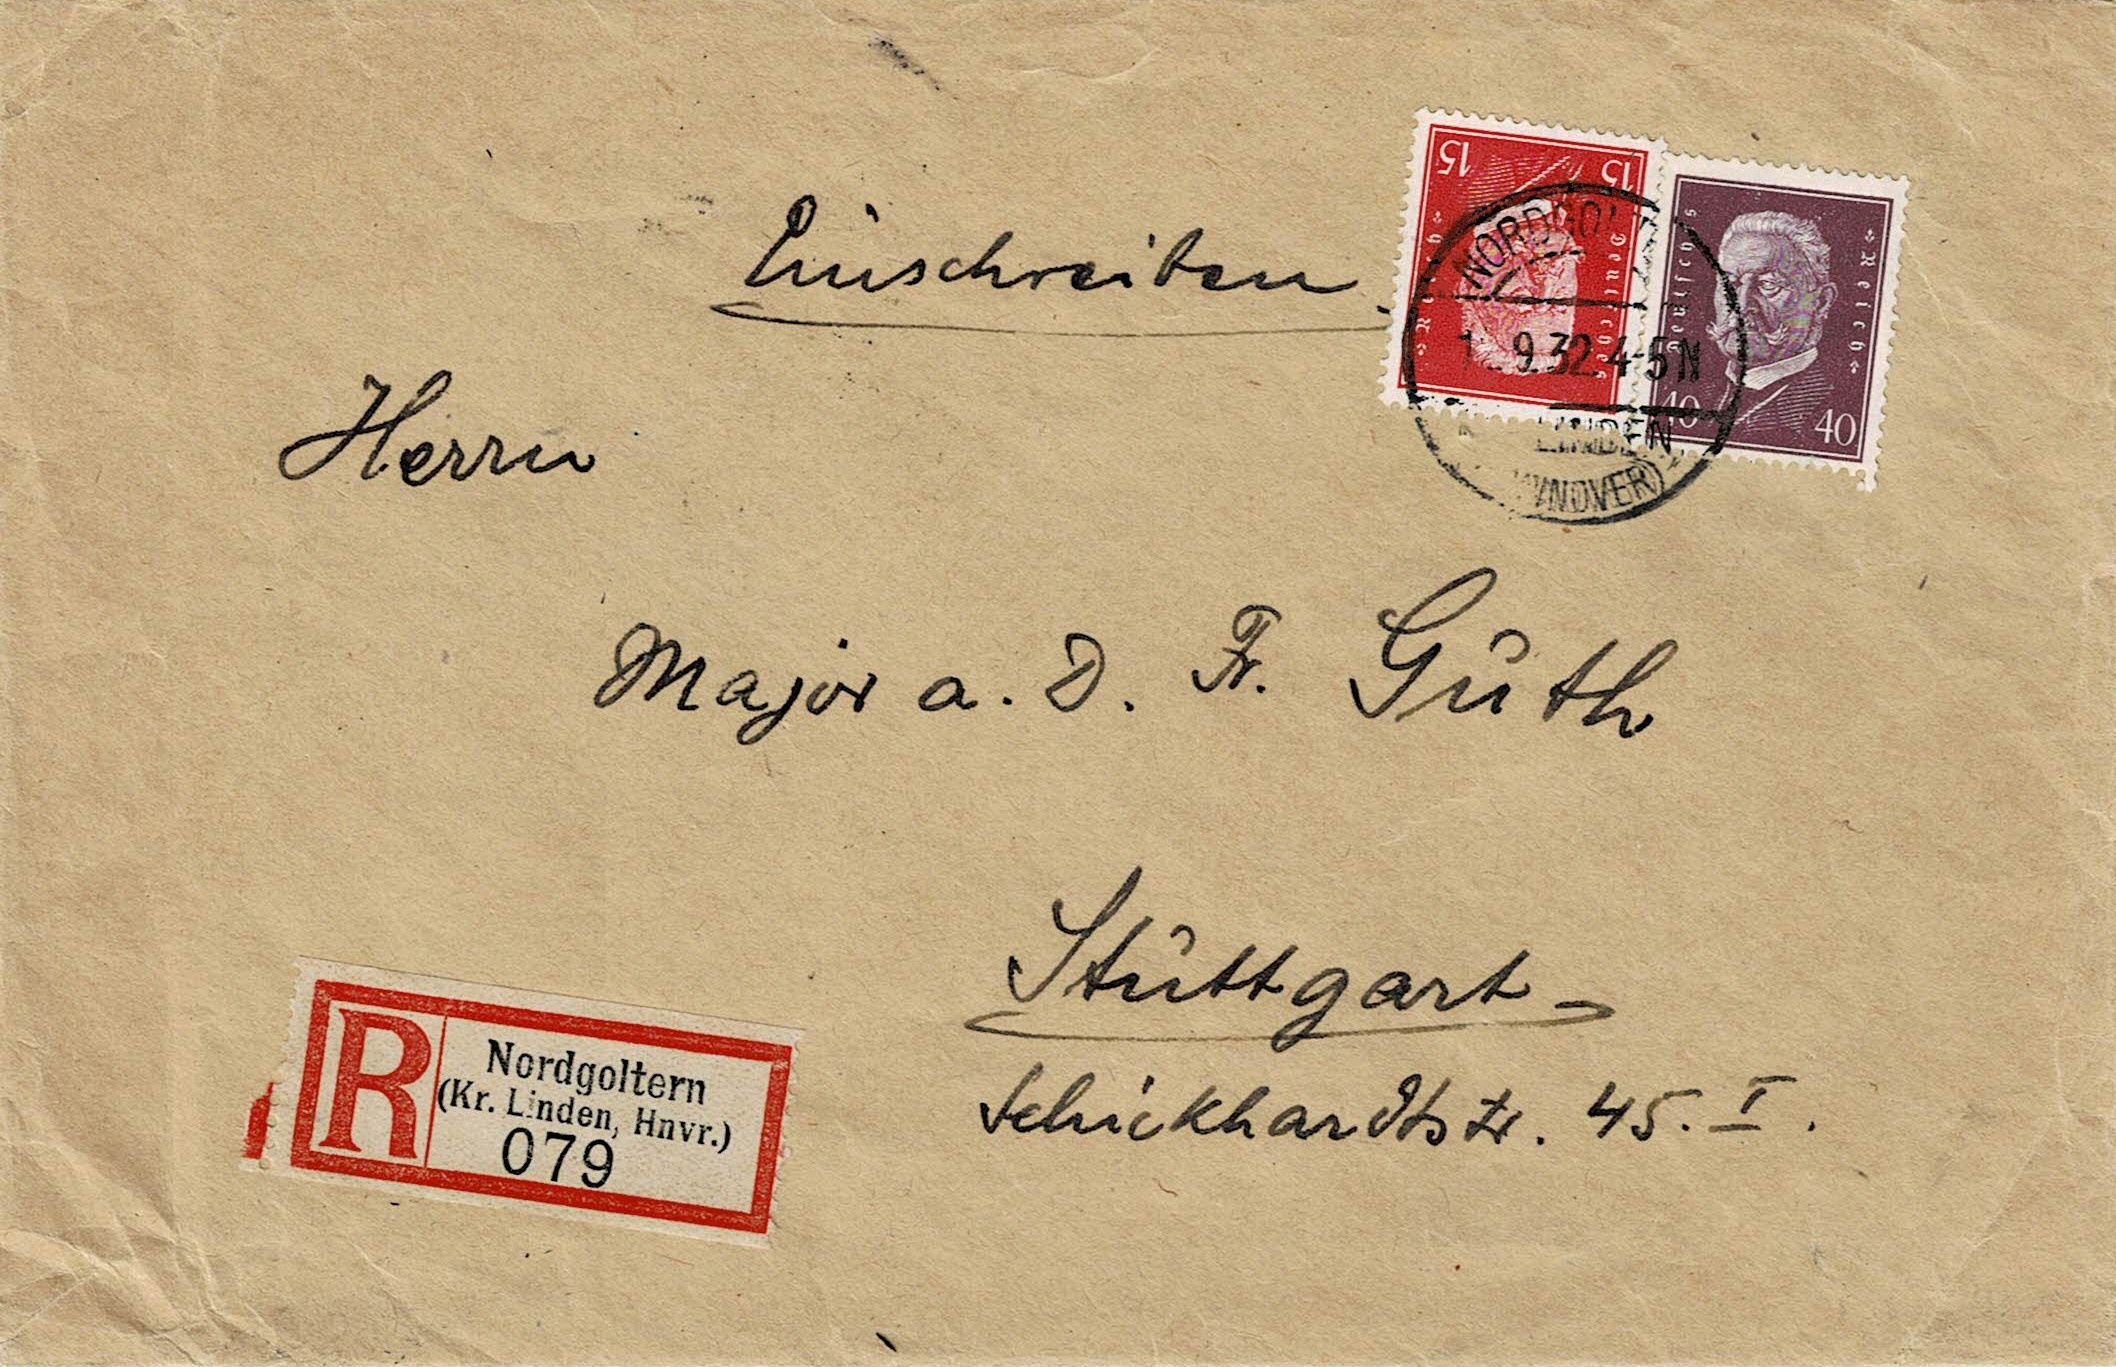 Einschreiben.
15 15
Deutsches Reich
Deutsches Reich
40 40
NORDGOLT
9.32.4-5N
LINDEN
NNOVER)
Herrn
Major a. D. Fr. Güth
Stuttgart
Schickhardtstr. 45. I.
R
Nordgoltern
(Kr. Linden, Hnvr.)
079